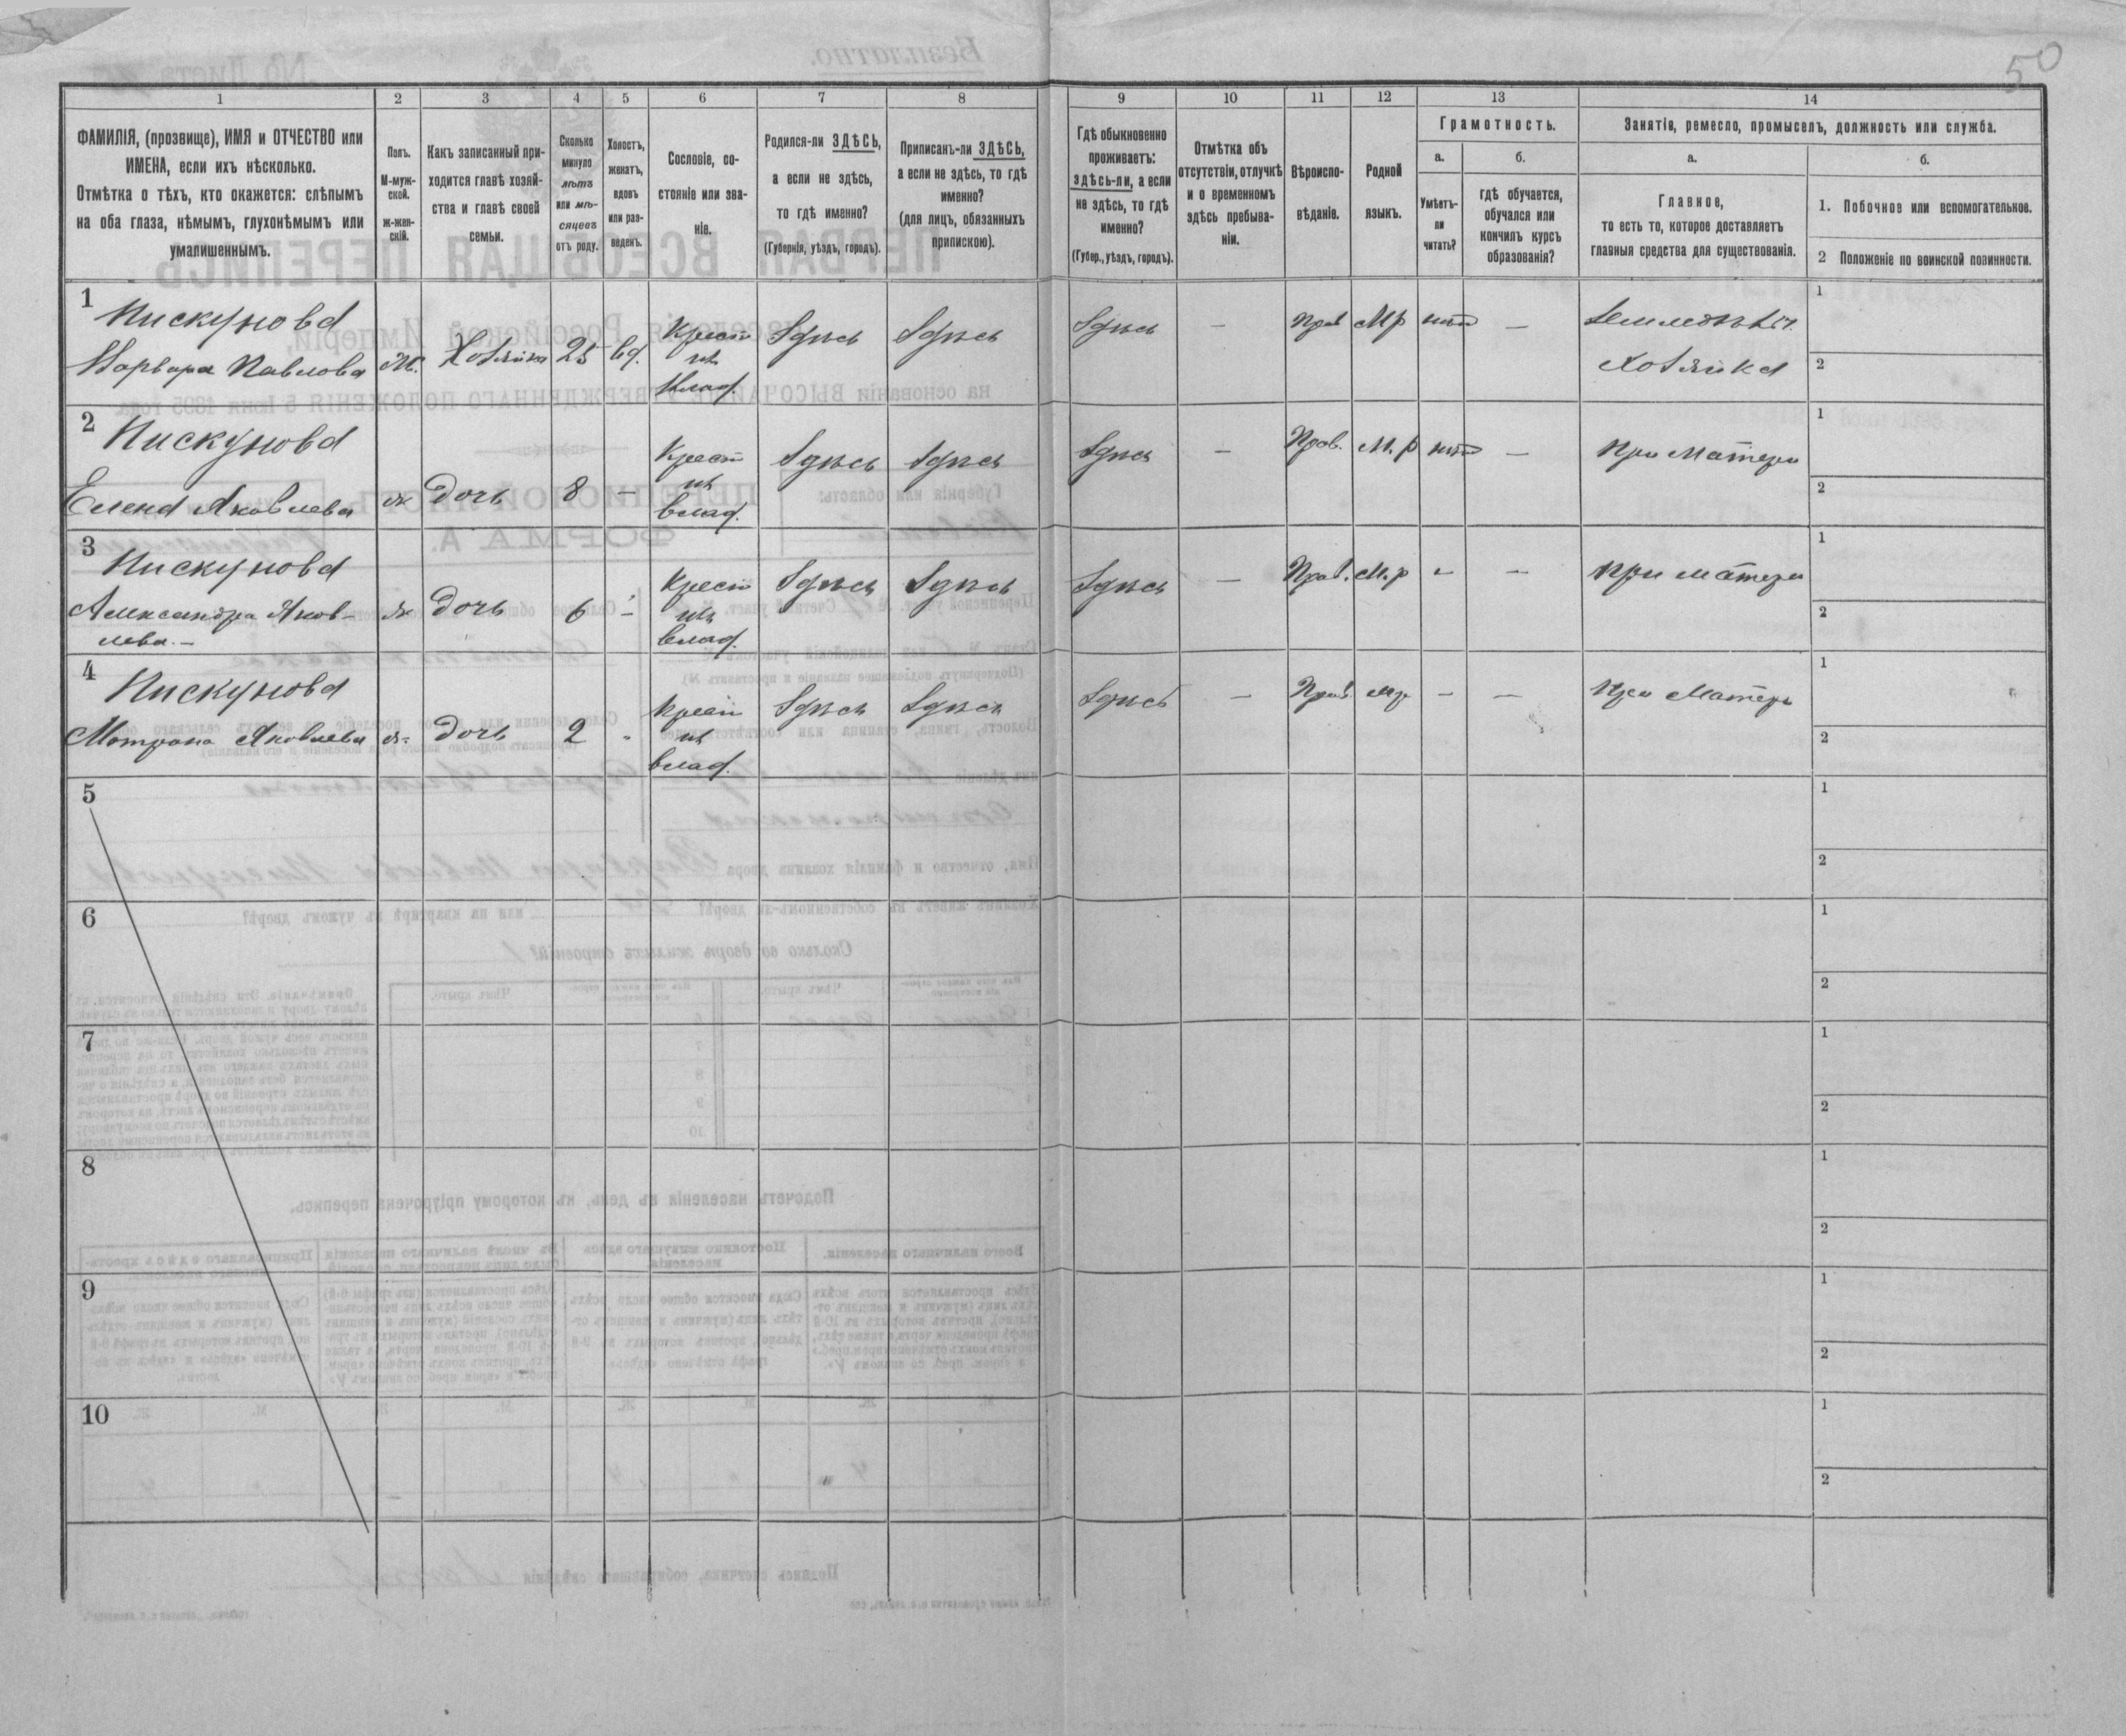 50
1
2
3
4
5
6
7
8
9
10
11
12
13
14
ФАМИЛІЯ, (прозвище), ИМЯ и ОТЧЕСТВО или
ИМЕНА, если ихъ нѣсколько.
Отмѣтка о тѣхъ, кто окажется: слѣпымъ
на оба глаза, нѣмымъ, глухонѣмымъ или
умалишеннымъ.
Полъ.
М-муж-
ской.
ж-жен-
скій.
Какъ записанный при-
ходится главѣ хозяй-
ства и главѣ своей
семьи.
Сколько
минуло
лѣтъ
или мѣ-
сяцевъ
отъ роду.
Холостъ,
женатъ,
вдовъ
или раз-
веденъ.
Сословіе, со-
стояніе или зва-
ніе.
Родился-ли ЗДѢСЬ,
а если не здѣсь,
то гдѣ именно?
(Губернія, уѣздъ, городъ).
Приписанъ-ли ЗДѢСЬ,
а если не здѣсь, то гдѣ
именно?
(для лицъ, обязанныхъ
припискою).
Гдѣ обыкновенно
проживаетъ:
здѣсь-ли, а если
не здѣсь, то гдѣ
именно?
(Губер., уѣздъ, городъ).
Отмѣтка объ
отсутствіи, отлучкѣ
и о временномъ
здѣсь пребыва-
ніи.
Вѣроиспо-
вѣданіе.
Родной
языкъ.
Грамотность.
а.
Умѣетъ-
ли
читать?
б.
гдѣ обучается,
обучался или
кончилъ курсъ
образованія?
Занятіе, ремесло, промыселъ, должность или служба.
а.
Главное,
то есть то, которое доставляетъ
главныя средства для существованія.
б.
1. Побочное или вспомогательное.
2 Положеніе по воинской повинности.
1
Пискунова
Варвара Павлова
Ж.
Хозяйка
25
вд.
Крест
изъ
влад.
Здѣсь
Здѣсь
Здѣсь
—
Прав
М р
нѣт
—
Хозяйка
1
2
2
Пискунова
Елена Яковлева
ж
дочь
8
—
Крест
изъ
влад.
Здѣсь
Здѣсь
Здѣсь
—
Прав.
М. р
нѣт
—
При Матери
1
2
3
Пискунова
Александра Яков-
лева. —
ж
дочь
6
—
Крест
изъ
влад.
Здѣсь
Здѣсь
Здѣсь
—
Прав.
М. р
-
—
при матери
1
2
4
Пискунова
Мотрона Яковлева
ж
дочь
2
-
Крест
изъ
влад.
Здѣсь
Здѣсь
Здѣсь
—
Прав
мр
-
—
При Матери
1
2
5
1
2
6
1
2
7
1
2
8
1
2
9
1
2
10
1
2